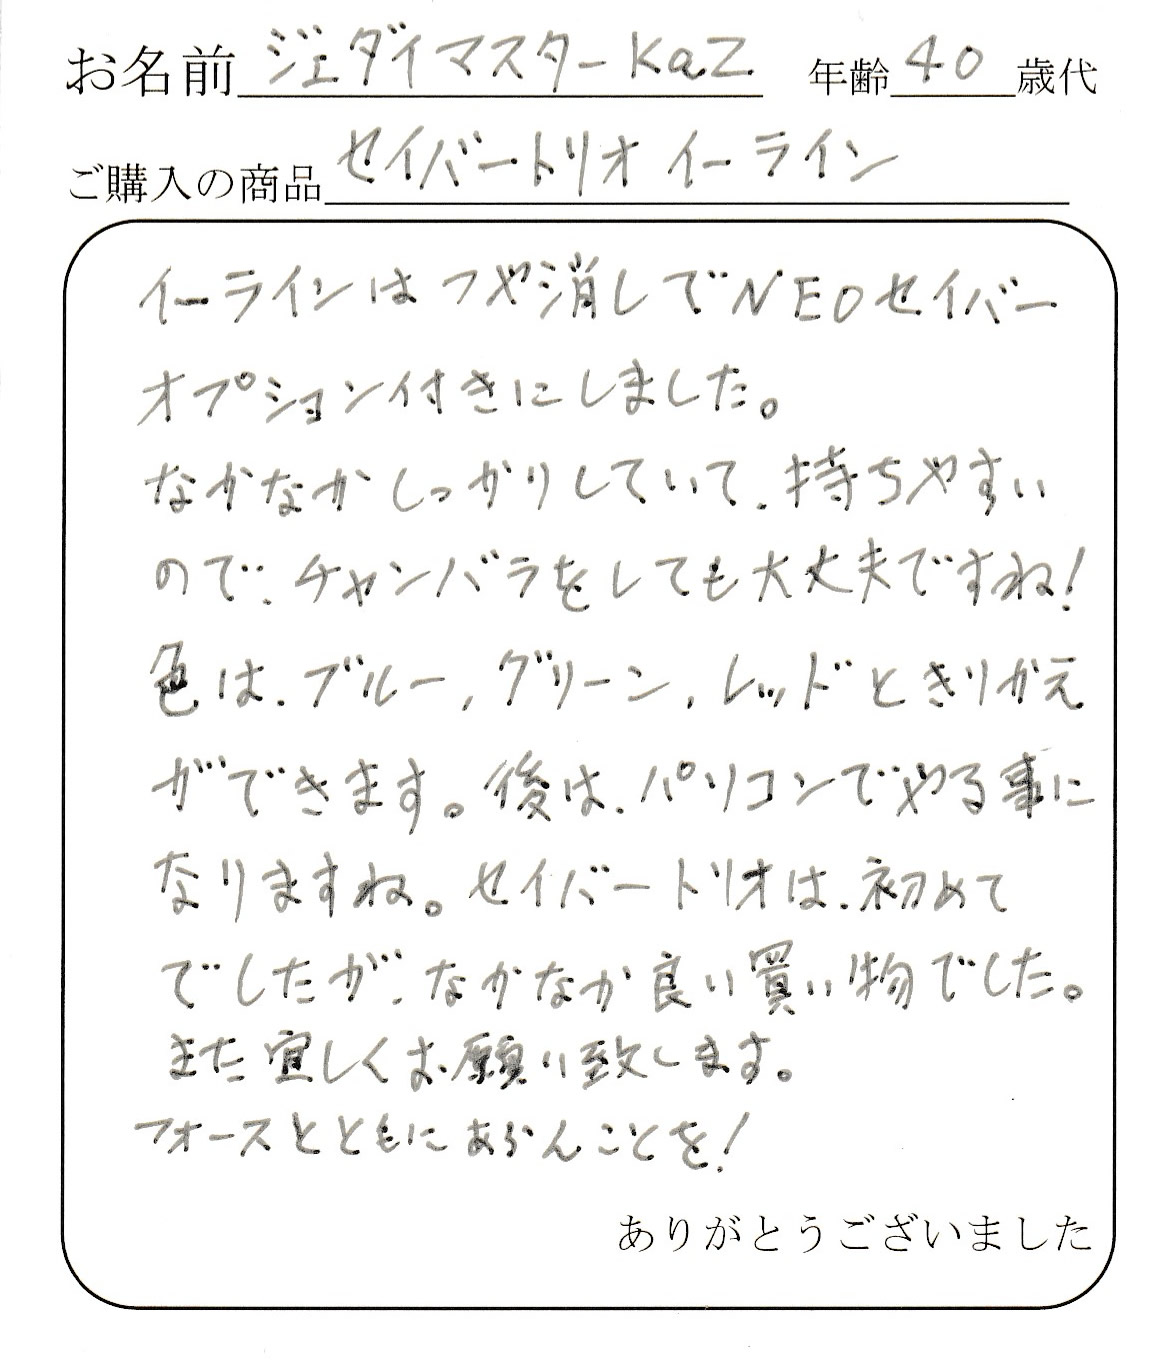 お名前 ジェダイマスターKaZ 年齢 40 歳代
ご購入の商品 セイバートリオ イーライン
イーラインはつや消しでNEOセイバー
オプション付きにしました。
なかなかしっかりしていて、持ちやすい
ので、チャンバラをしても大丈夫ですね!
色は、ブルー,グリーン,レッドときりかえ
ができます。後は、パソコンでやる事に
なりますね。セイバートリオは、初めて
でしたが、なかなか良い買い物でした。
また宜しくお願い致します。
フォースとともにあらんことを!
ありがとうございました